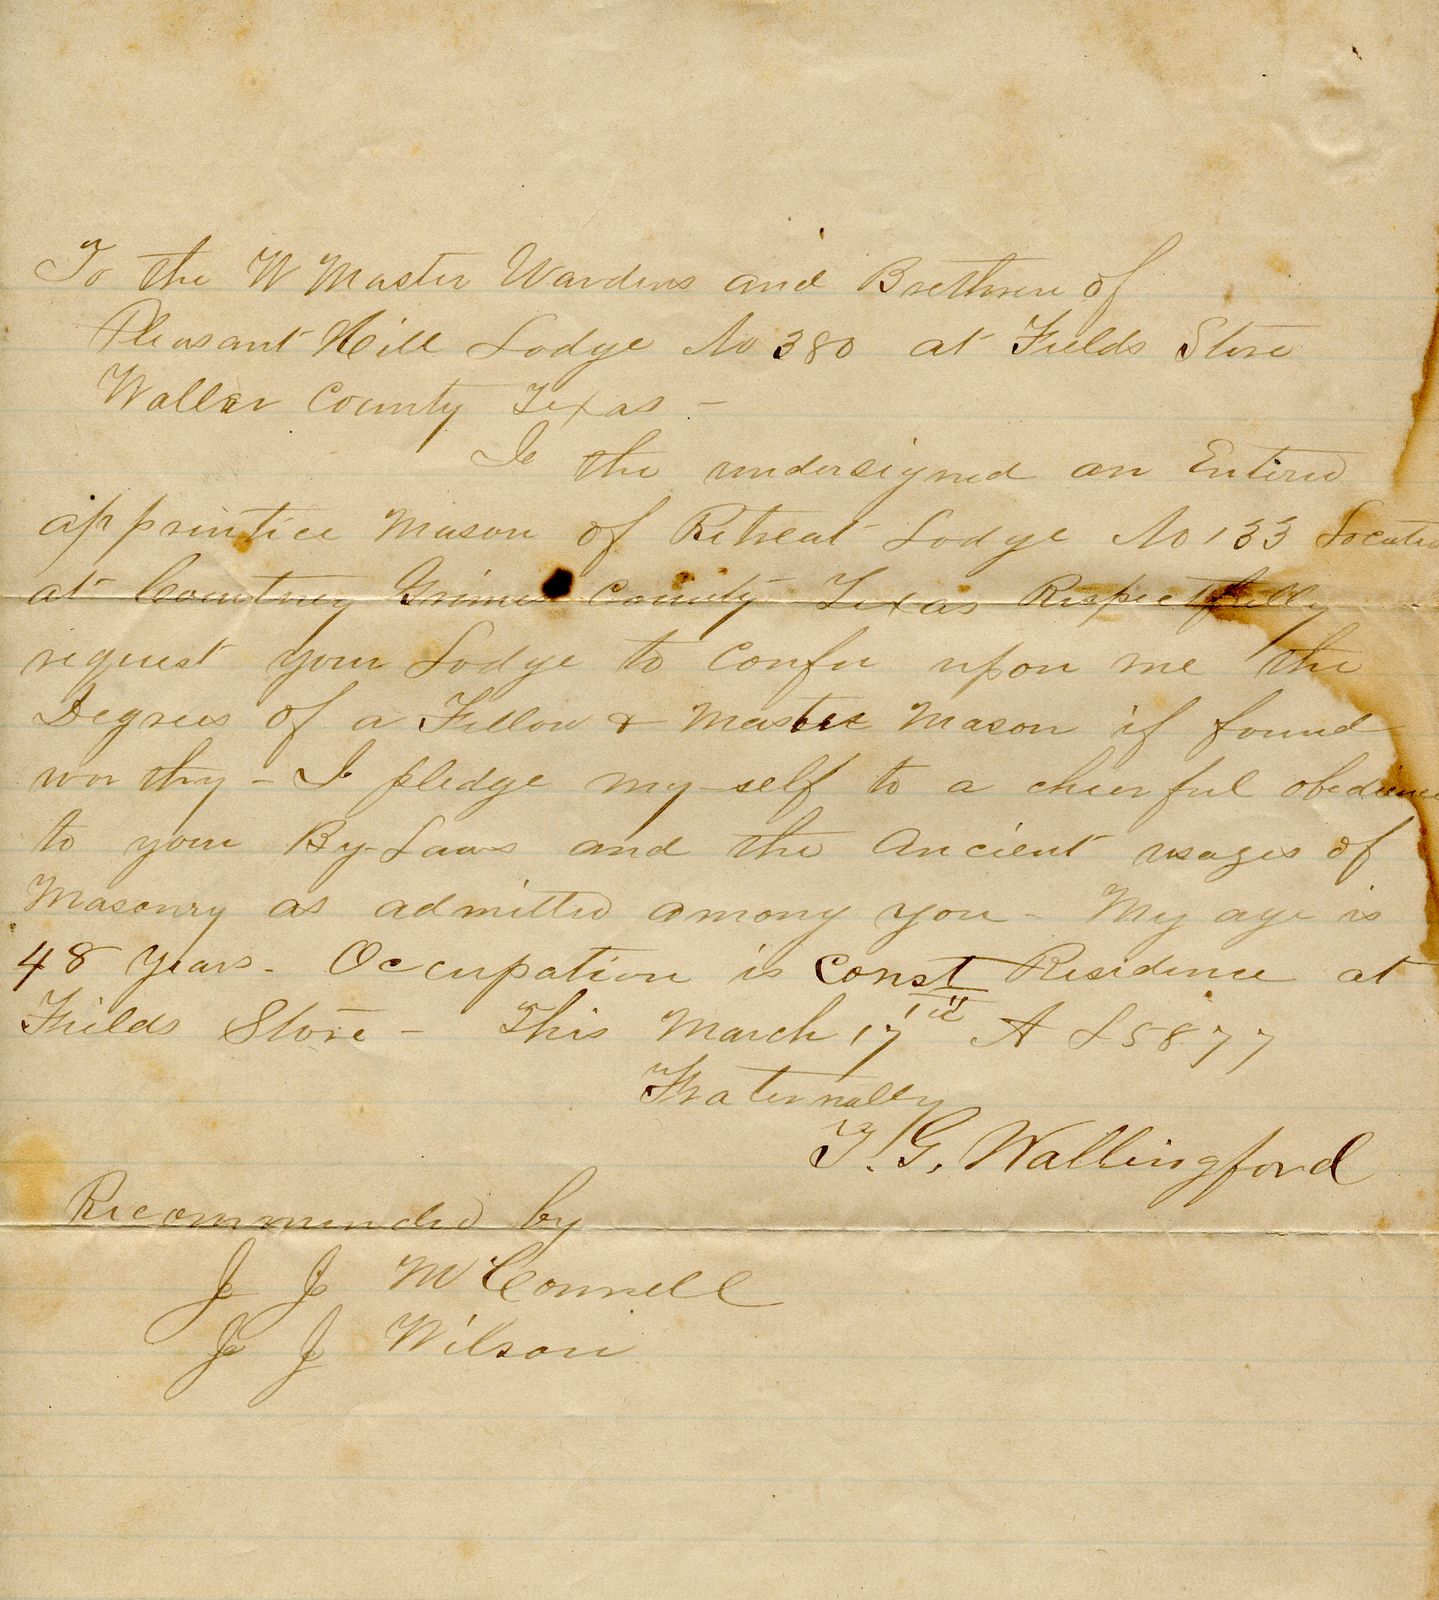 To the W Master Wardens and Brethren of
Pleasant Hill Lodge No 380 at Fields Store
Waller County Texas -
I the undersigned an Entered
apprintice Mason of Retreat Lodge No 133 Located
at Courtney Grimes County Texas Respectfully
request your Lodge to Confer upon me the
Degrees of a Fellow & Master Mason if found
worthy - I pledge my-self to a cheerful obedience
to your By-Laws and the Ancient usages of
Masonry as admitted among you - My age is
48 years - Occupation is Const Residence at
Fields Store - This March 17 A L 5877
Fraternally
T. G. Wallingford
Recommended by
J J McConnell
J J Wilson